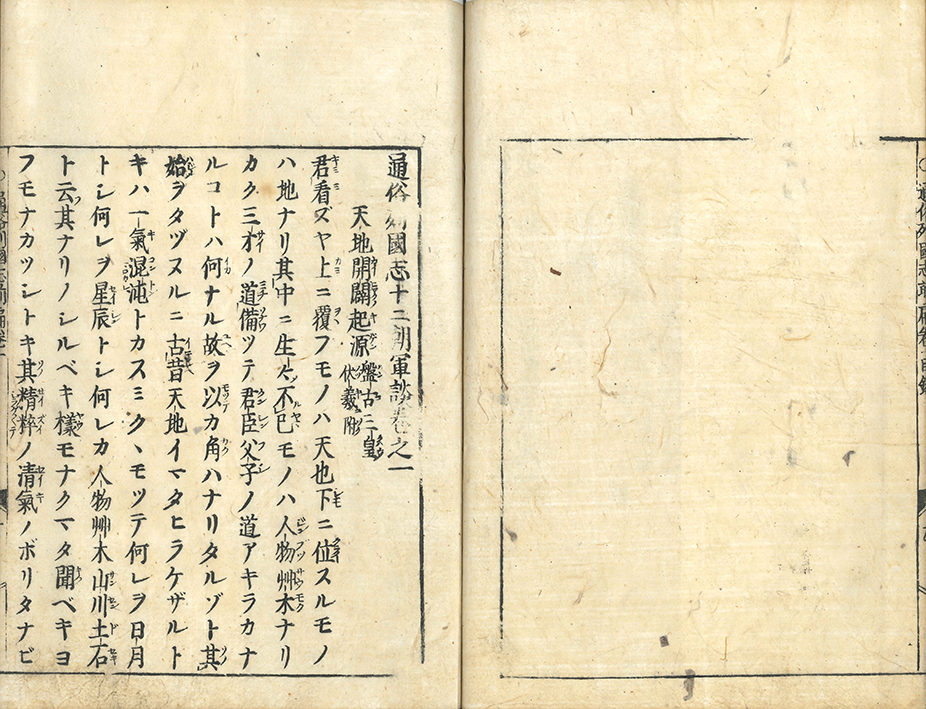 通俗列國志十二朝軍談卷之一
天地開闢起源 盤古三皇
伏羲附
君看ズヤ上ニ覆フモノハ天也下ニ位スルモノ
ハ地ナリ其中ニ生〆不已モノハ人物艸木ナリ
カク三才ノ道備ツテ君臣父子ノ道アキラカナ
ルコトハ何ナル故ヲ以カ角ハナリタルゾト其
始ヲタヅヌルニ古昔天地イマタヒラケザルト
キハ一氣混沌トカスミク、モツテ何レヲ日月
トシ何レヲ星辰トシ何レカ人物艸木山川土石
ト云其ナリノシルベキ樣モナクマタ聞ベキヨ
フモナカツシトキ其精粹ノ清氣ノボリタナビ